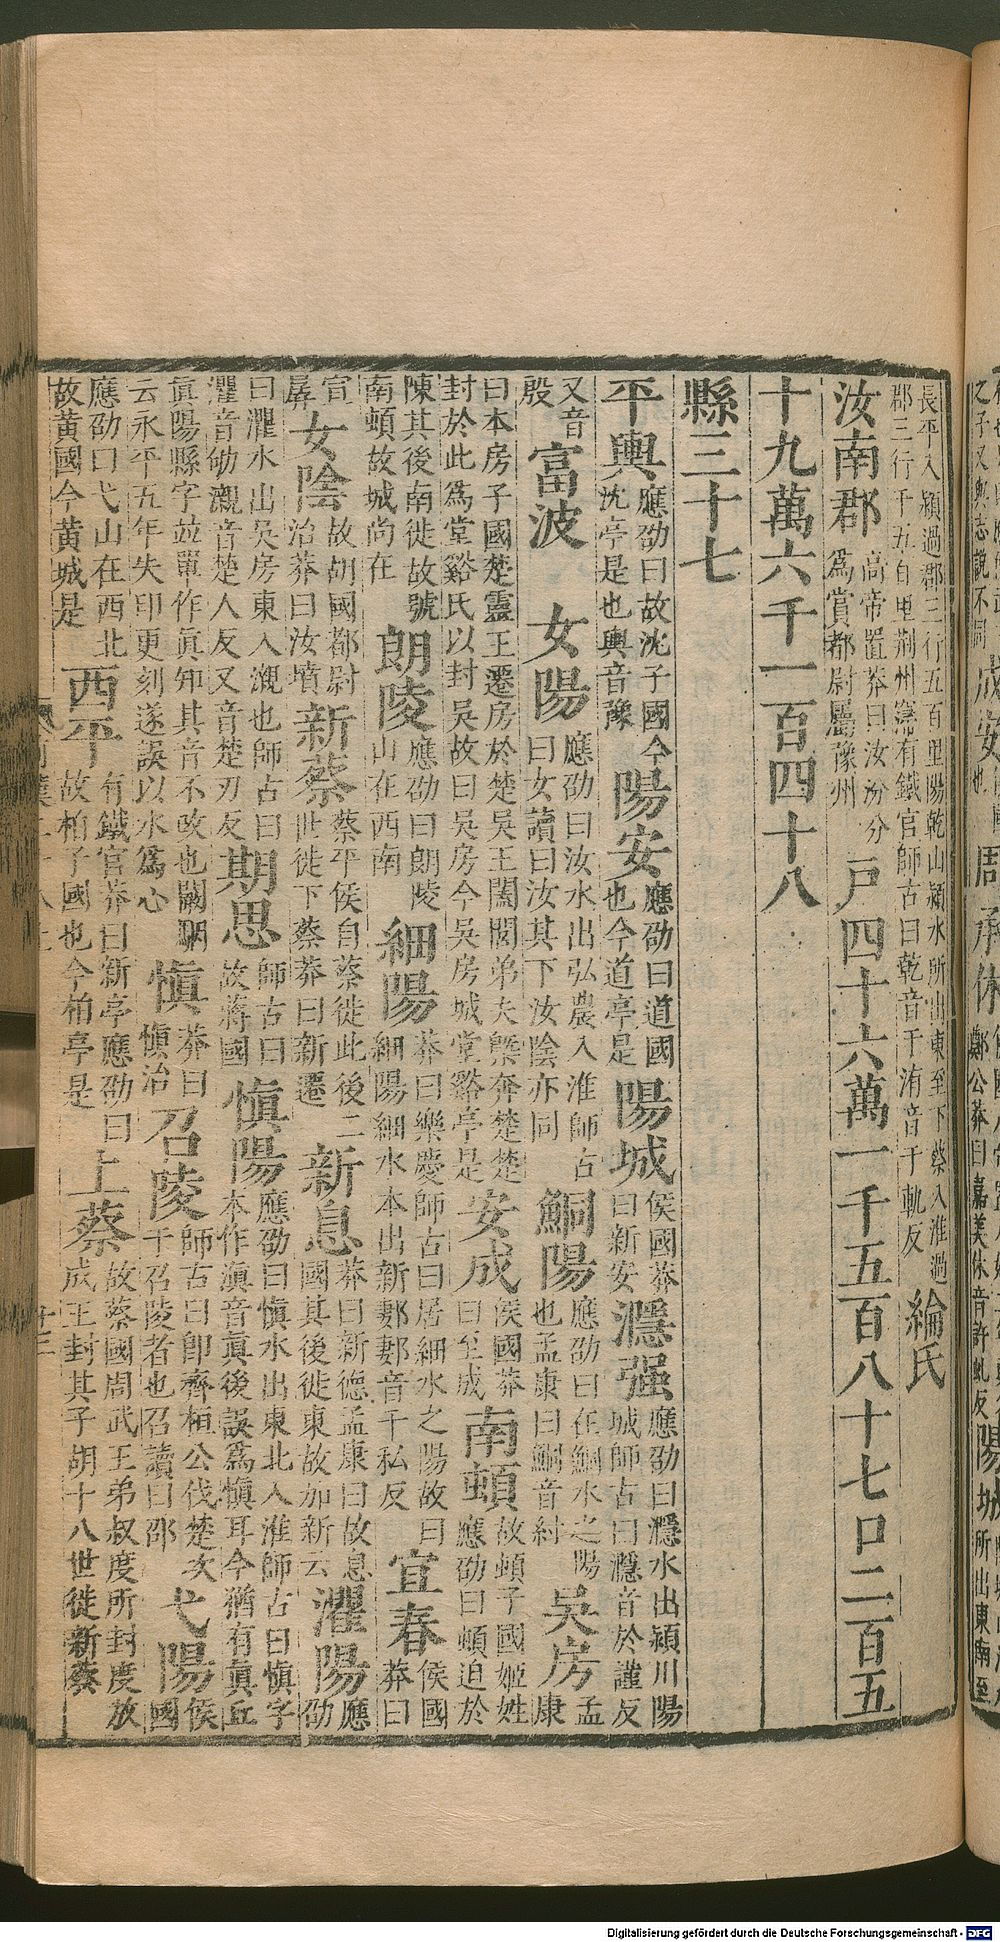 長平入潁過郡三行五百里陽乾山潁水所出東至下蔡入淮過郡三行千五百里荆州寖有鐵官師古曰乾音干洧音于軌反綸氏
汝南郡高帝置莽曰汝汾分爲賞都尉屬豫州戶四十六萬一千五百八十七口二百五
十九萬六千一百四十八
縣三十七
平輿應劭曰故沈子國今沈亭是也輿音豫陽安應劭曰道國也今道亭是陽城侯國莽曰新安濦强應劭曰濦水出潁川陽城師古曰濦音於謹反
又音殷富波女陽應劭曰汝水出弘農入淮師古曰女讀曰汝其下汝陰亦同鮦陽應劭曰在鮦水之陽也孟康曰鮦音紂吳房孟康
曰本房子國楚靈王遷房於楚吳王闔閭弟夫㮣奔楚楚封於此爲堂谿氏以封吳故曰吳房今吳房城堂谿亭是安成侯國莽曰至成南頓故頓子國姬姓應劭曰頓迫於
陳其後南徙故號南頓故城尚在朗陵應劭曰朗陵山在西南細陽莽曰樂慶師古曰居細水之陽故曰細陽細水本出新郪郪音千私反宜春侯國莽曰
宣孱女陰故胡國都尉治莽曰汝墳新蔡蔡平侯自蔡徙此後二世徙下蔡莽曰新遷新息莽曰新德孟康曰故息國其後徙東故加新云灈陽應劭
曰灈水出吳房東入瀙也師古曰灈音劬瀙音楚人反又音楚刃反期思師古曰故蔣國慎陽應劭曰慎水出東北入淮師古曰慎字本作滇音眞後誤爲慎耳今猶有眞丘
眞陽縣字竝單作眞知其音不改也闞駰云永平五年失印更刻遂誤以水爲心慎莽曰慎治召陵師古曰即齊桓公伐楚次于召陵者也召讀曰邵弋陽侯國
應劭曰弋山在西北故黃國今黃城是西平有鐵官莽曰新亭應劭曰故柏子國也今柏亭是上蔡故蔡國周武王弟叔度所封度放成王封其子胡十八世徙新蔡
Digitalisierung gefördert durch die Deutsche Forschungsgemeinschaft - DFG